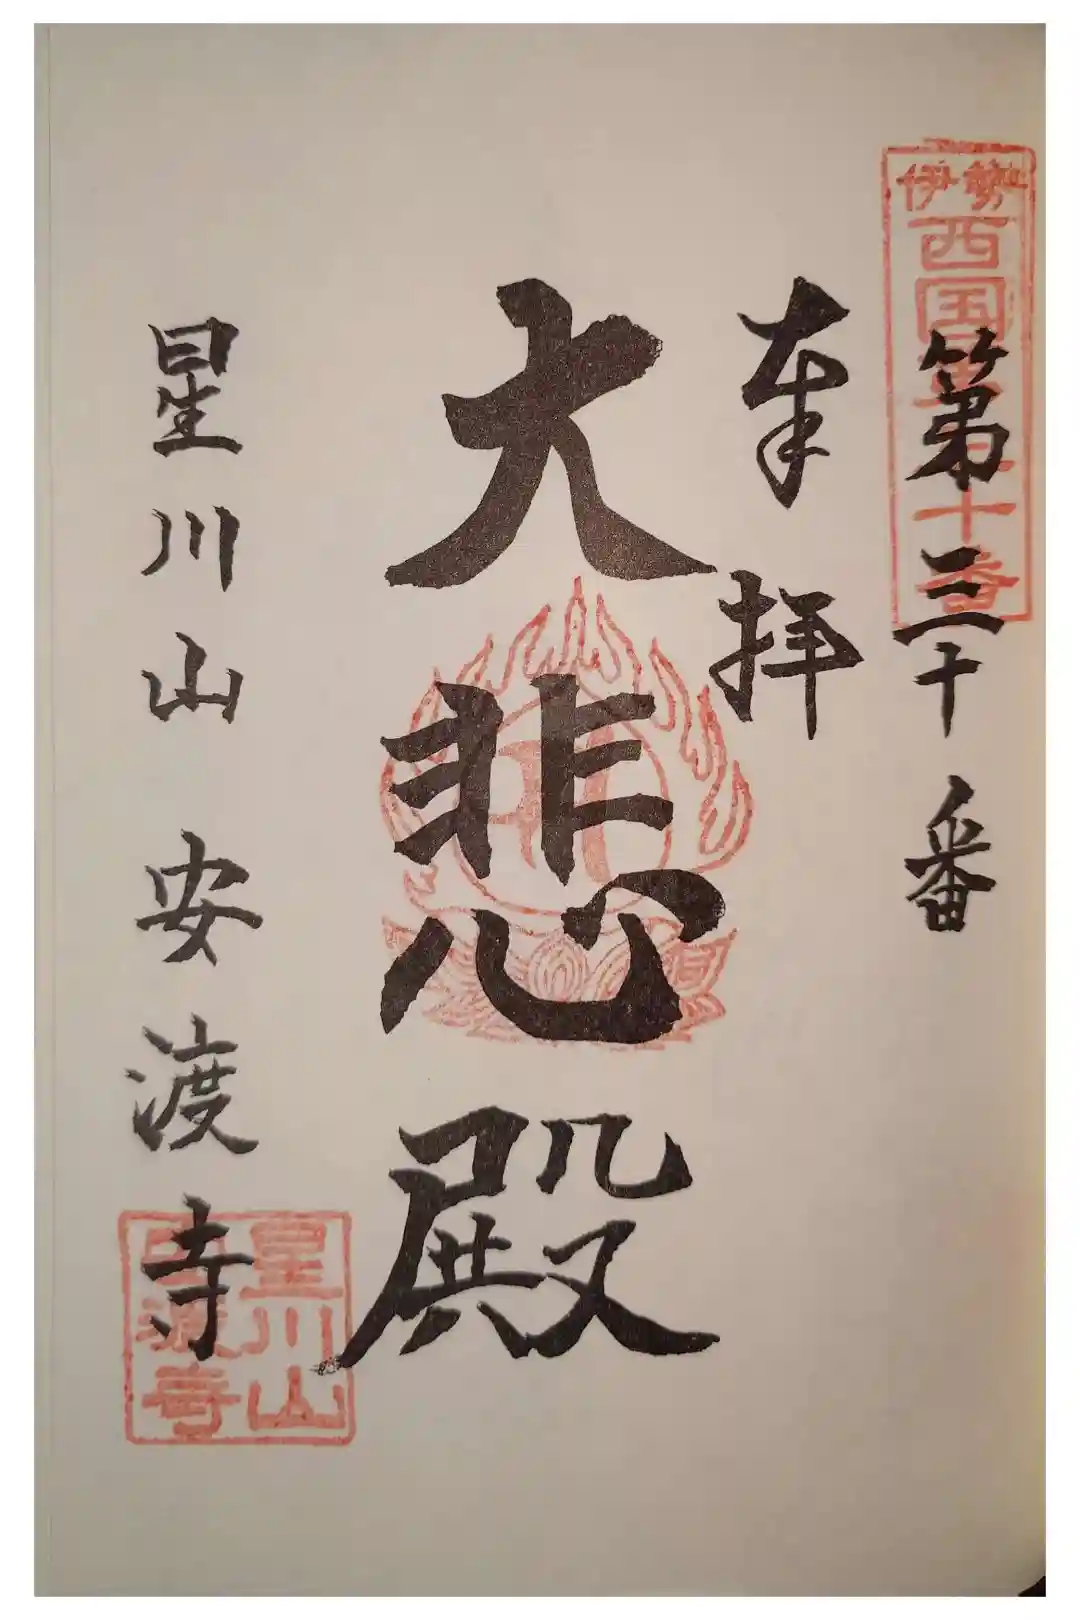 伊勢
西国第三十番
第三十番
奉拝
大悲殿
星川山安渡寺
星川山
安渡寺